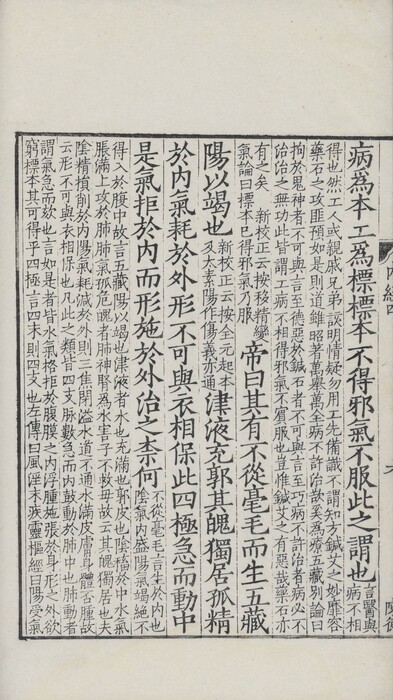 病為本工為標標本不得邪氣不服此之謂也言醫與
病不相
得也然工人或親戚兄弟該明情疑勿用工先備識不謂知方鍼艾之妙靡容
藥石之攻匪預如是則道雖昭著萬舉萬全病不許治故奚為療五藏別論曰
拘於鬼神者不可與言至德惡於鍼石者不可與言至巧病不許治者病必不
治治之無功此皆謂工病不相得邪氣不賓服也豈惟鍼艾之有惡哉藥石亦
有之矣 新校正云按移精變
氣論曰標本已得邪氣乃服
帝曰其有不從毫毛而生五藏
陽以竭也
新校正云按全元起本
及太素陽作傷義亦通
津液充郭其魄獨居孤精
於內氣耗於外形不可與衣相保此四極急而動中
是氣拒於內而形施於外治之柰何
不從毫毛言生於內也
陰氣內盛陽氣竭絕不
得入於腹中故言五藏陽以竭也津液者水也充滿也郭皮也陰穡於中水氣
脹滿上攻於肺肺氣孤危魄者肺神腎為水害子不救母故云其魄獨居也夫
陰精損削於內陽氣耗減於外則三焦閉溢水道不通水滿皮膚身體否腫故
云形不可與衣相保也凡此之類皆四支脉數急而內鼓動於肺中也肺動者
謂氣急而欬也言如是者皆水氣格拒於腹膜之內浮腫施張於身形之外欲
窮標本其可得乎四極言四末則四支也左傳曰風淫末疾靈樞經曰陽受氣